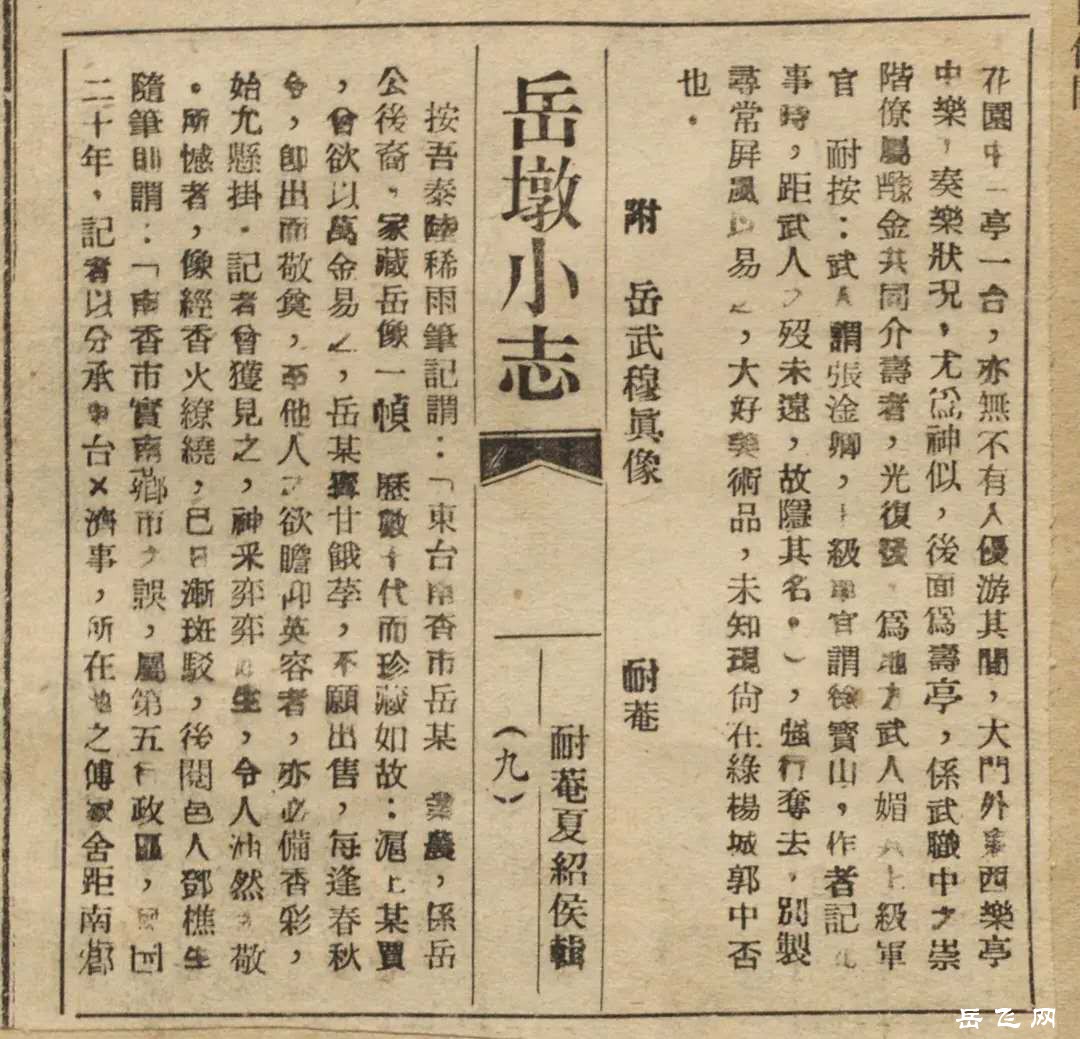 花園中一亭一台，亦無不有人優游其間，大門外東西樂亭
中樂，奏樂狀況，尤為神似，後面為壽亭，係武職中之崇
階僚屬醵金共同介壽者，光復後　為地方武人媚其上級軍
官　耐按：武人謂張淦卿，上級軍官謂徐寶山，作者記此
事時，距武人之歿未遠，故隱其名。），強行奪去，別製
尋常屏風以易之，大好美術品，未知現尚在綠楊城郭中否
也。
附　岳武穆眞像　耐菴
岳墩小志
（九）
耐菴夏紹侯輯
按吾泰陸稀雨筆記謂：「東台南香市岳某　業農，係岳
公後裔，家藏岳像一幀　歷數十代而珍藏如故：滬上某賈
，曾欲以萬金易之，岳某寧甘餓莩，不願出售，每逢春秋
令，卽出而敬奠，而他人之欲瞻仰英容者，亦必備香彩，
始允懸掛．記者曾獲見之，神采弈弈如生，令人油然　敬
。所憾者，像經香火繚繞，已日漸斑駁，後閱邑人鄧樵生
隨筆則謂：「南香市實南鄉市之誤，屬第五行政區，　囘
二十年，記者以分承中台×濟事，所在地之傅家舍距南鄉
岳飞网